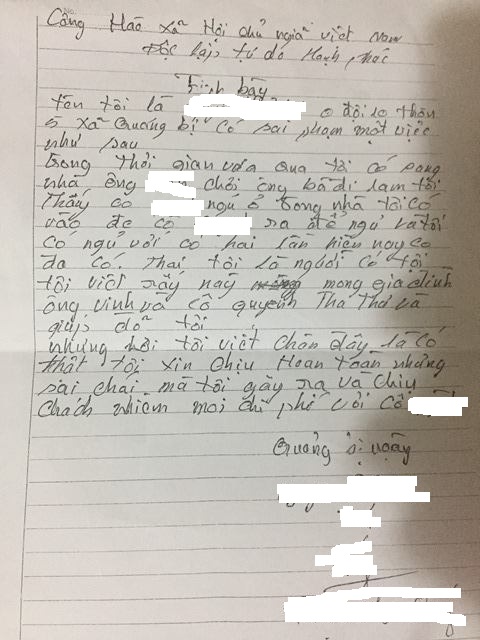 Công Hào xã Hội chủ nghiã việt Nam
Độc lập, tự do Hạnh phúc
Trình bày
Tên tôi là ở đội 10 thôn
5 xã Quảng bị có sai phạm một việc
như sau
trong Thời gian vừa qua tôi có sang
nhà ông chơi ông bà đi làm tôi
Thấy cô ngủ ở trong nhà tôi có
vào đè cô ra để ngủ và tôi
có ngủ với cô hai lần hiện nay cô
đã có Thai tôi là người có tội
tôi viết giấy này mong gia đình
ông vinh và cô quyên Tha Thứ và
giúp đỡ tôi
những nời tôi viết chên đây là có
thật tôi xin chịu Hoàn toàn những
sai chái mà tôi gây ra và chịu
chách nhiệm mọi chi phí với cô
Quảng bị ngày